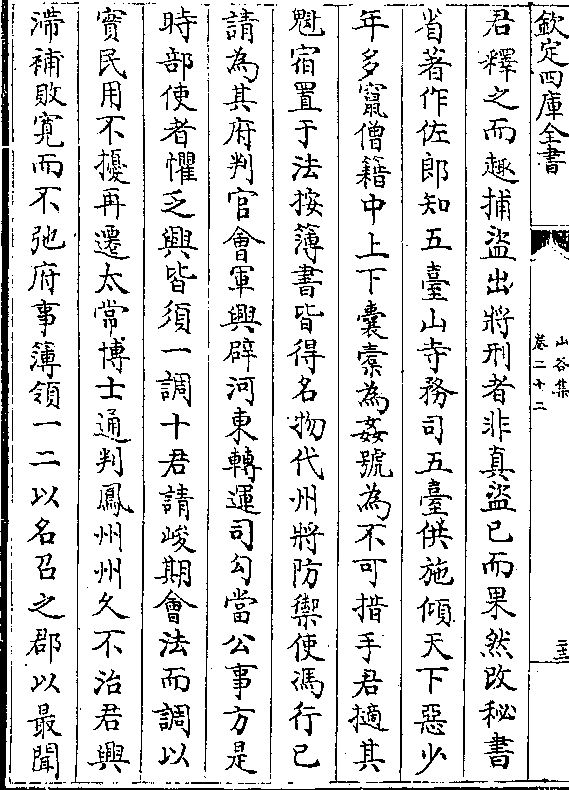 欽定四庫全書
山谷集
卷二十二
二十三
君釋之而趣捕盜出將刑者非真盜已而果然改秘書
省著作佐郎知五臺山寺務司五臺供施傾天下惡少
年多竄僧籍中上下囊橐為姦號為不可措手君擿其
魁宿置于法按簿書皆得名物代州將防禦使馮行已
請為其府判官會軍興辟河東轉運司勾當公事方是
時部使者懼乏興皆須一調十君請峻期會法而調以
實民用不擾再遷太常博士通判鳳州州久不治君興
滯補敗寛而不弛府事簿領一二以名召之郡以最聞